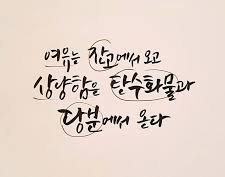 여유는 잔고에서 오고
상냥함은 탄수화물과
당분에서 온다